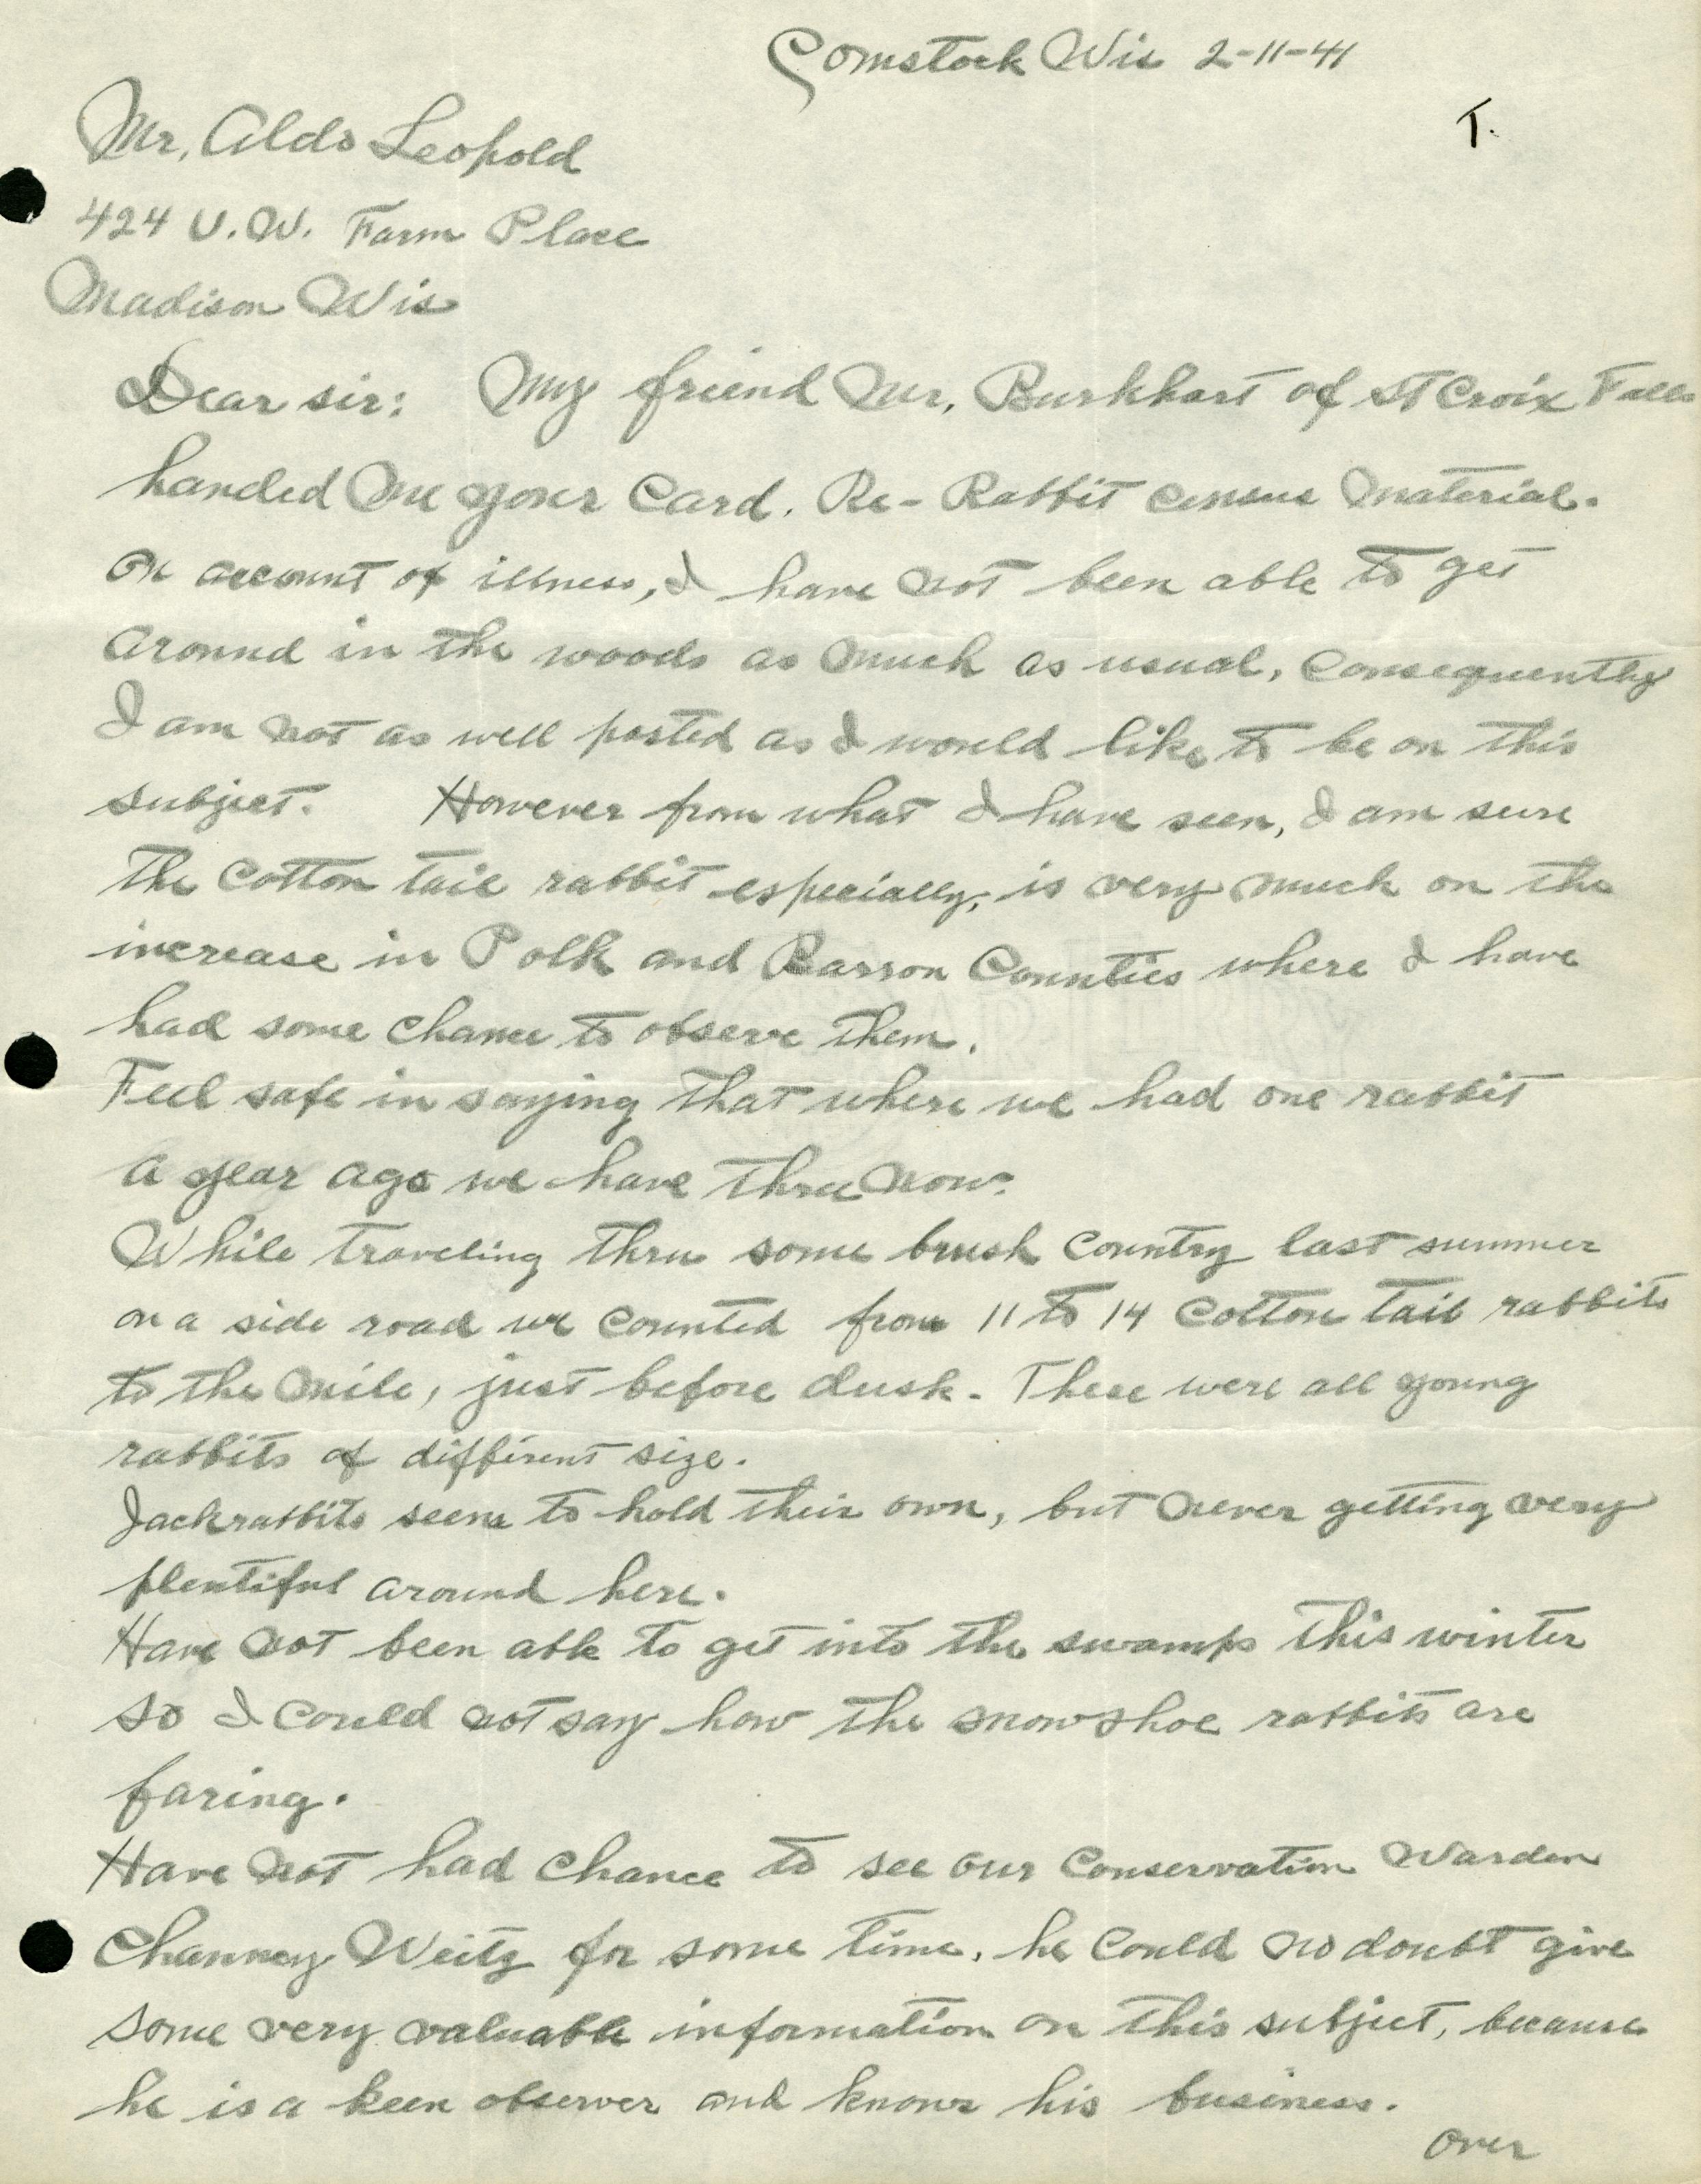 Comstock Wis 2-11-41
T.
Mr, Aldo Leopold
424 U.W. Farm Place
Madison Wis
Dear sir: My friend Mr, Burkhart of St Croix Falls
handed me your card. Re- Rabbit census material.
On account of illness, I have not been able to get
around in the woods as much as usual, consequently
I am not as well posted as I would like to be on this
subject. However from what I have seen, I am sure
the cotton tail rabbit especially, is very much on the
increase in Polk and Barron Counties where I have
had some chance to observe them.
Feel safe in saying that where we had one rabbit
a year ago we have three now.
While traveling thru some brush country last summer
on a side road we counted from 11 to 14 cotton tail rabbits
to the mile, just before dusk. These were all young
rabbits of different size.
Jackrabbits seem to hold their own, but never getting very
plentiful around here.
Have not been able to get into the swamps this winter
so I could not say how the snowshoe rabbits are
faring.
Have not had chance to see our Conservation Warden
Chauncy Weitz for some time, he could no doubt give
some very valuable information on this subject, because
he is a keen observer and knows his business.
over